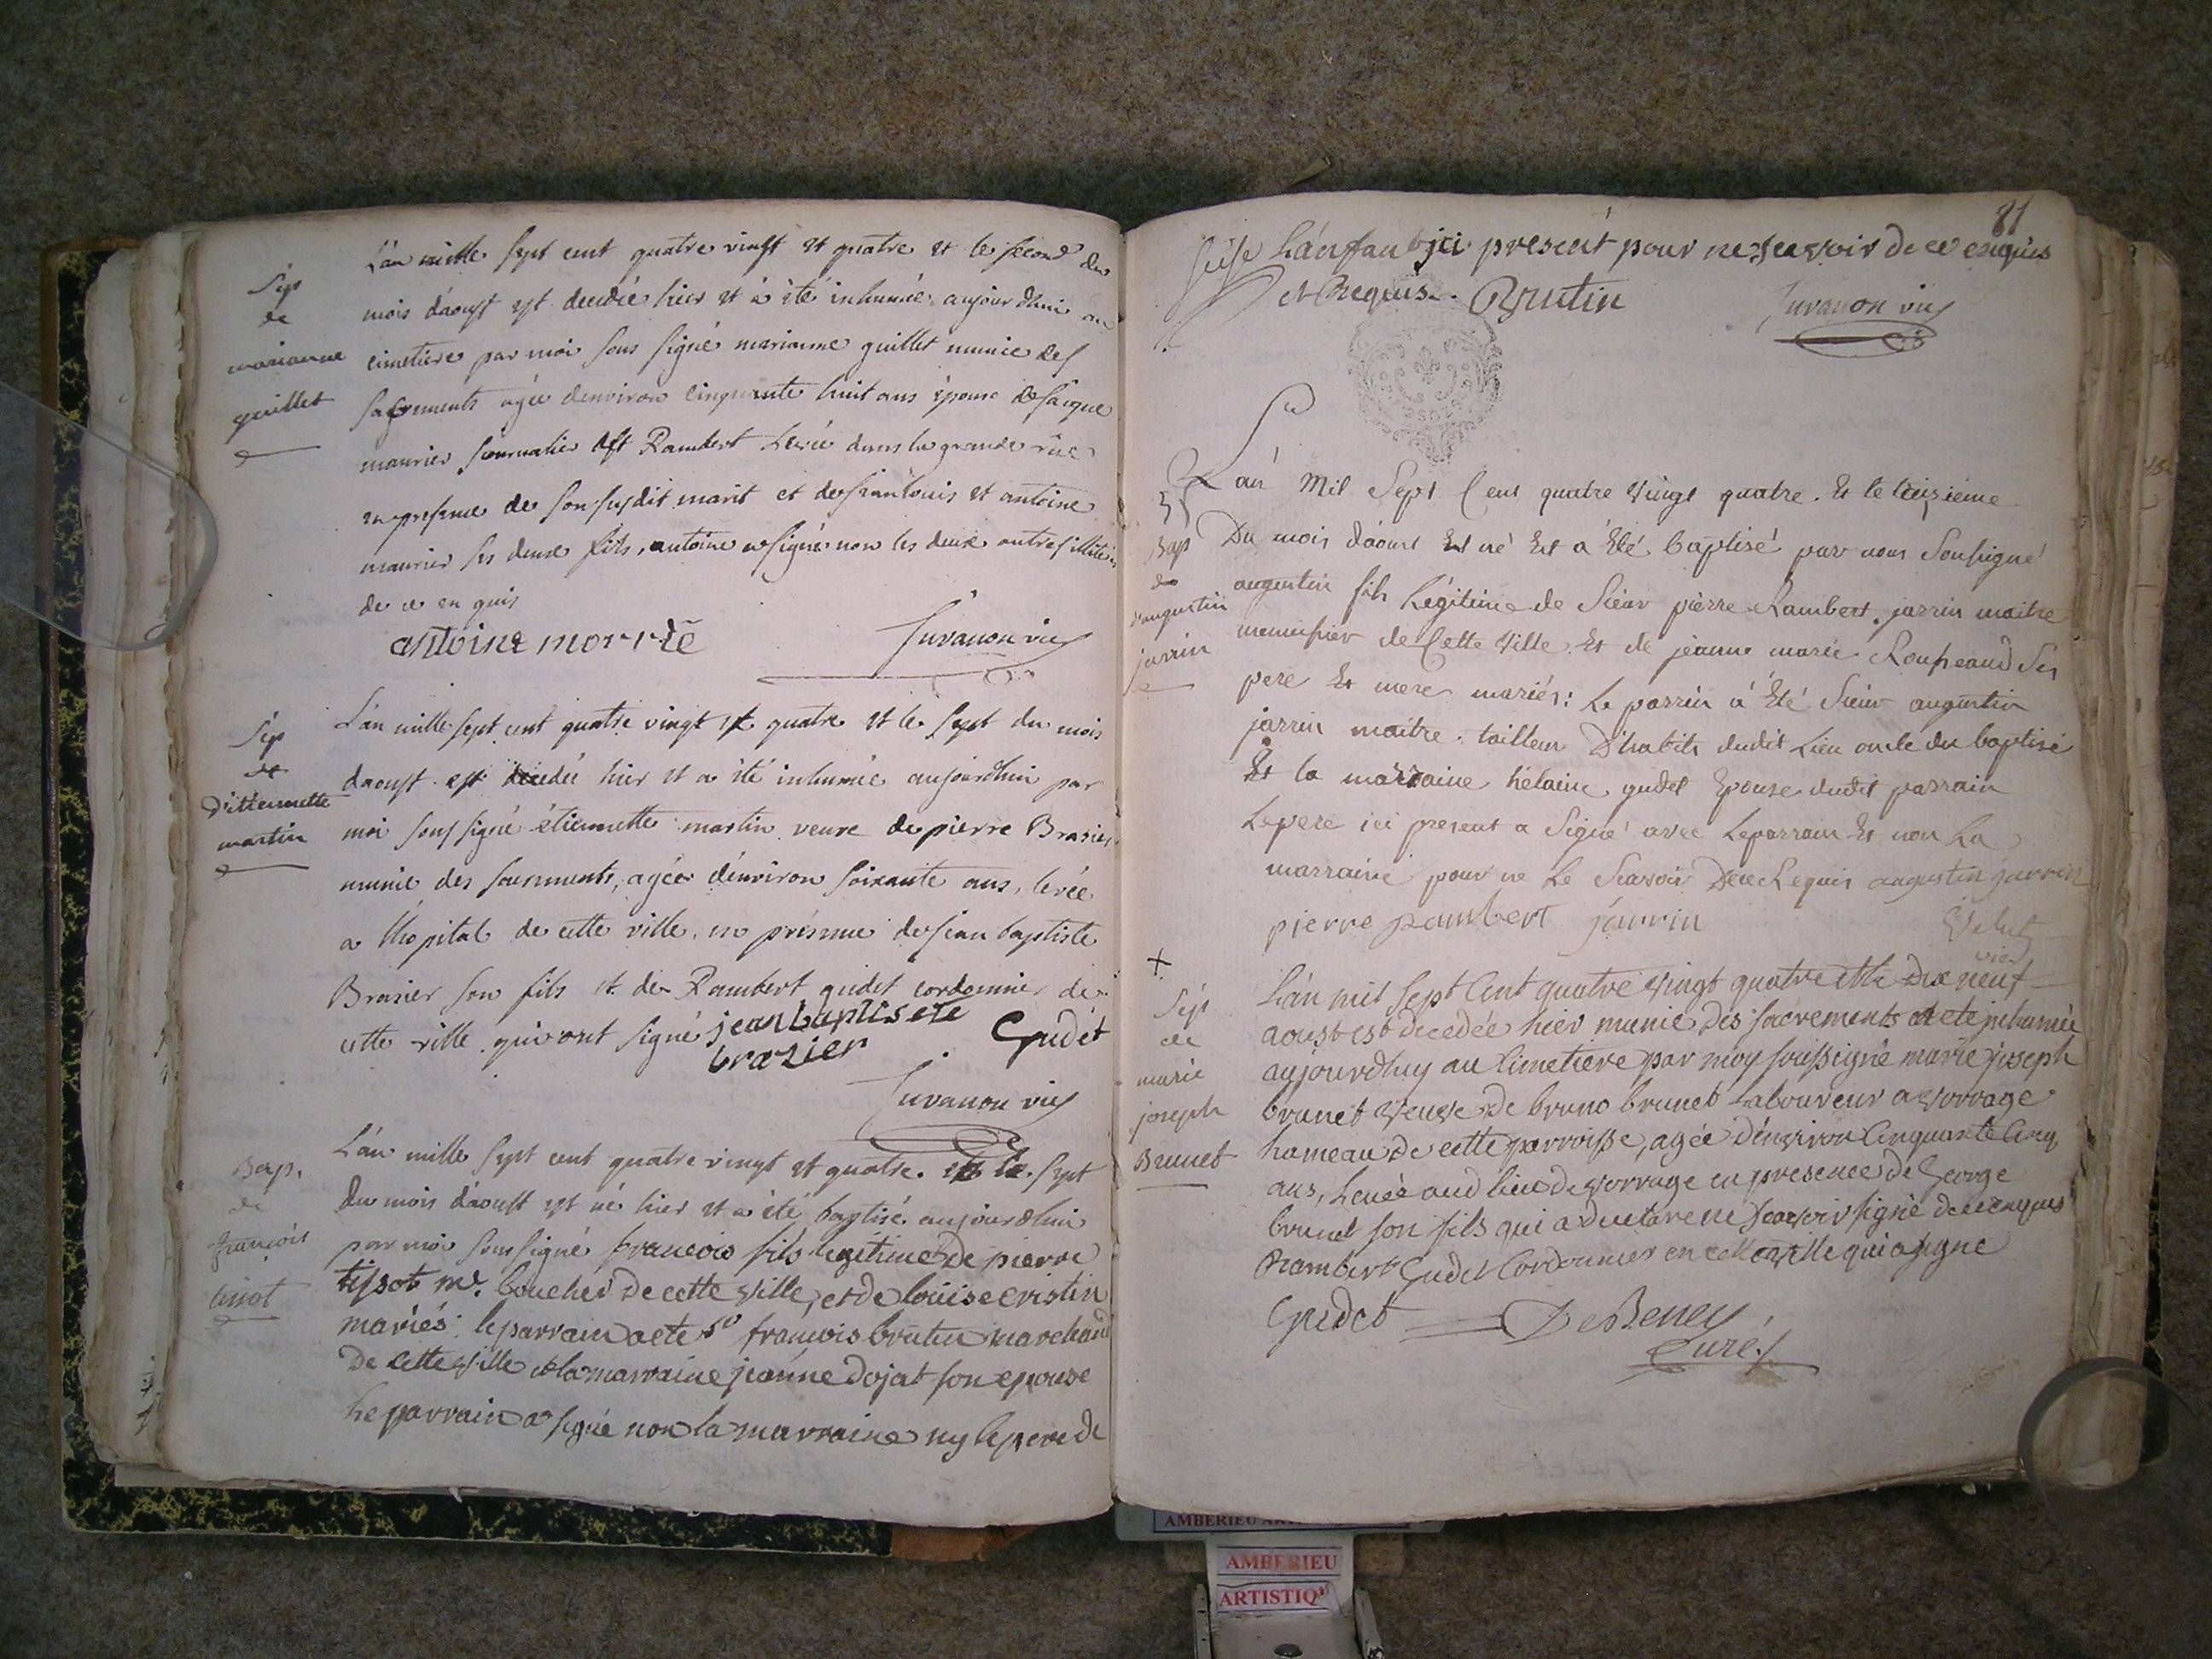 Sép
de
marianne
guillet
L'an mille sept cent quatre vingt et quatre et le second du
mois d'aoust est decedée hier et a été inhumée aujourdhui au
cimetiere par moi sous signé marianne guillet munie des
sacrements agée denviron cinquante huit ans épouse de
maurier journalier Rambert Levée dans la grande rüe
en presence de son susdit marit et de et antoine
maurier ses deux fils, antoine a signé non les deux autres
de ce en quis
antoine morrie
Juvanon vic
Sép
de
d'étiennette
martin
L'an mille sept cent quatre vingt et quatre et le sept du mois
daoust est decedée hier et a été inhumée aujourdhui par
moi sous signé étiennette martin veuve de pierre Brasier
munie des sacrements, agée d'environ soixante ans, levée
a l'hopital de cette ville, en présence de jean baptiste
Brasier son fils et de Rambert gudet cordonnier de
cette ville qui ont signé jean baptiste
brazier Gudet
Juvanon vic
Bap.
de
françois
tissot
L'an mille sept cent quatre vingt et quatre et le sept
du mois d'aoust est né hier et a été baptisé aujourdhui
par moi sous signé francois fils legitime de pierre
tissot me. boucher de cette ville, et de loüise cristin
mariés: le parrain a ete sr francois brutin marchand
de cette ville et la marraine jeanne dojat son epouse
le parrain a signé non la marraine ny le pere de
81
l'anffant ici present pour ne sçavoir de ce enquis
et Requis. Brutin Juvanon vic
Bap
de
d'augustin
jarrin
L'an Mil Sept Cent quatre vingt quatre. Et le treizième
Du mois d'aoust Est né Et a Eté baptisé par nous Soussigné
augustin fils Légitime de Sieur pierre Rambert jarrin maitre
menuisier de Cette ville. Et de jeanne marie Ses
pere Et mere mariés: Le parrin à Eté Sieur augustin
jarrin maitre tailleur D'habits dudit Lieu oncle du baptisé
Et la marraine hélaine gudet Epouse dudit parrain
Le pere ici present a Signé avec Le parrain Et non La
marraine pour ne Le Scavoir De ce Requis augustin jarrin
pierre rambert jarrin
Velut
vic
+
Sép
de
marie
joseph
Brunet
L'an mil sept Cent quatre vingt quatre et le dix neuf
aoust est decedée hier munie des sacrements et a ete inhumée
aujourdhuy au Cimetiere par moy soussigné marie joseph
brunet veuve de bruno brunet Laboureur a vorrage
hameau de cette parroisse, agée d'environ Cinquante Cinq
ans, Levée aud lieu de vorrage en presence de George
brunet son fils qui a declaré ne sçavoir signé de ce enquis
Rambert Gudet Cordonnier en cette ville qui a signé
Gudet De Beney
Curé
AMBERIEU
AMBERIEU
ARTISTIQ